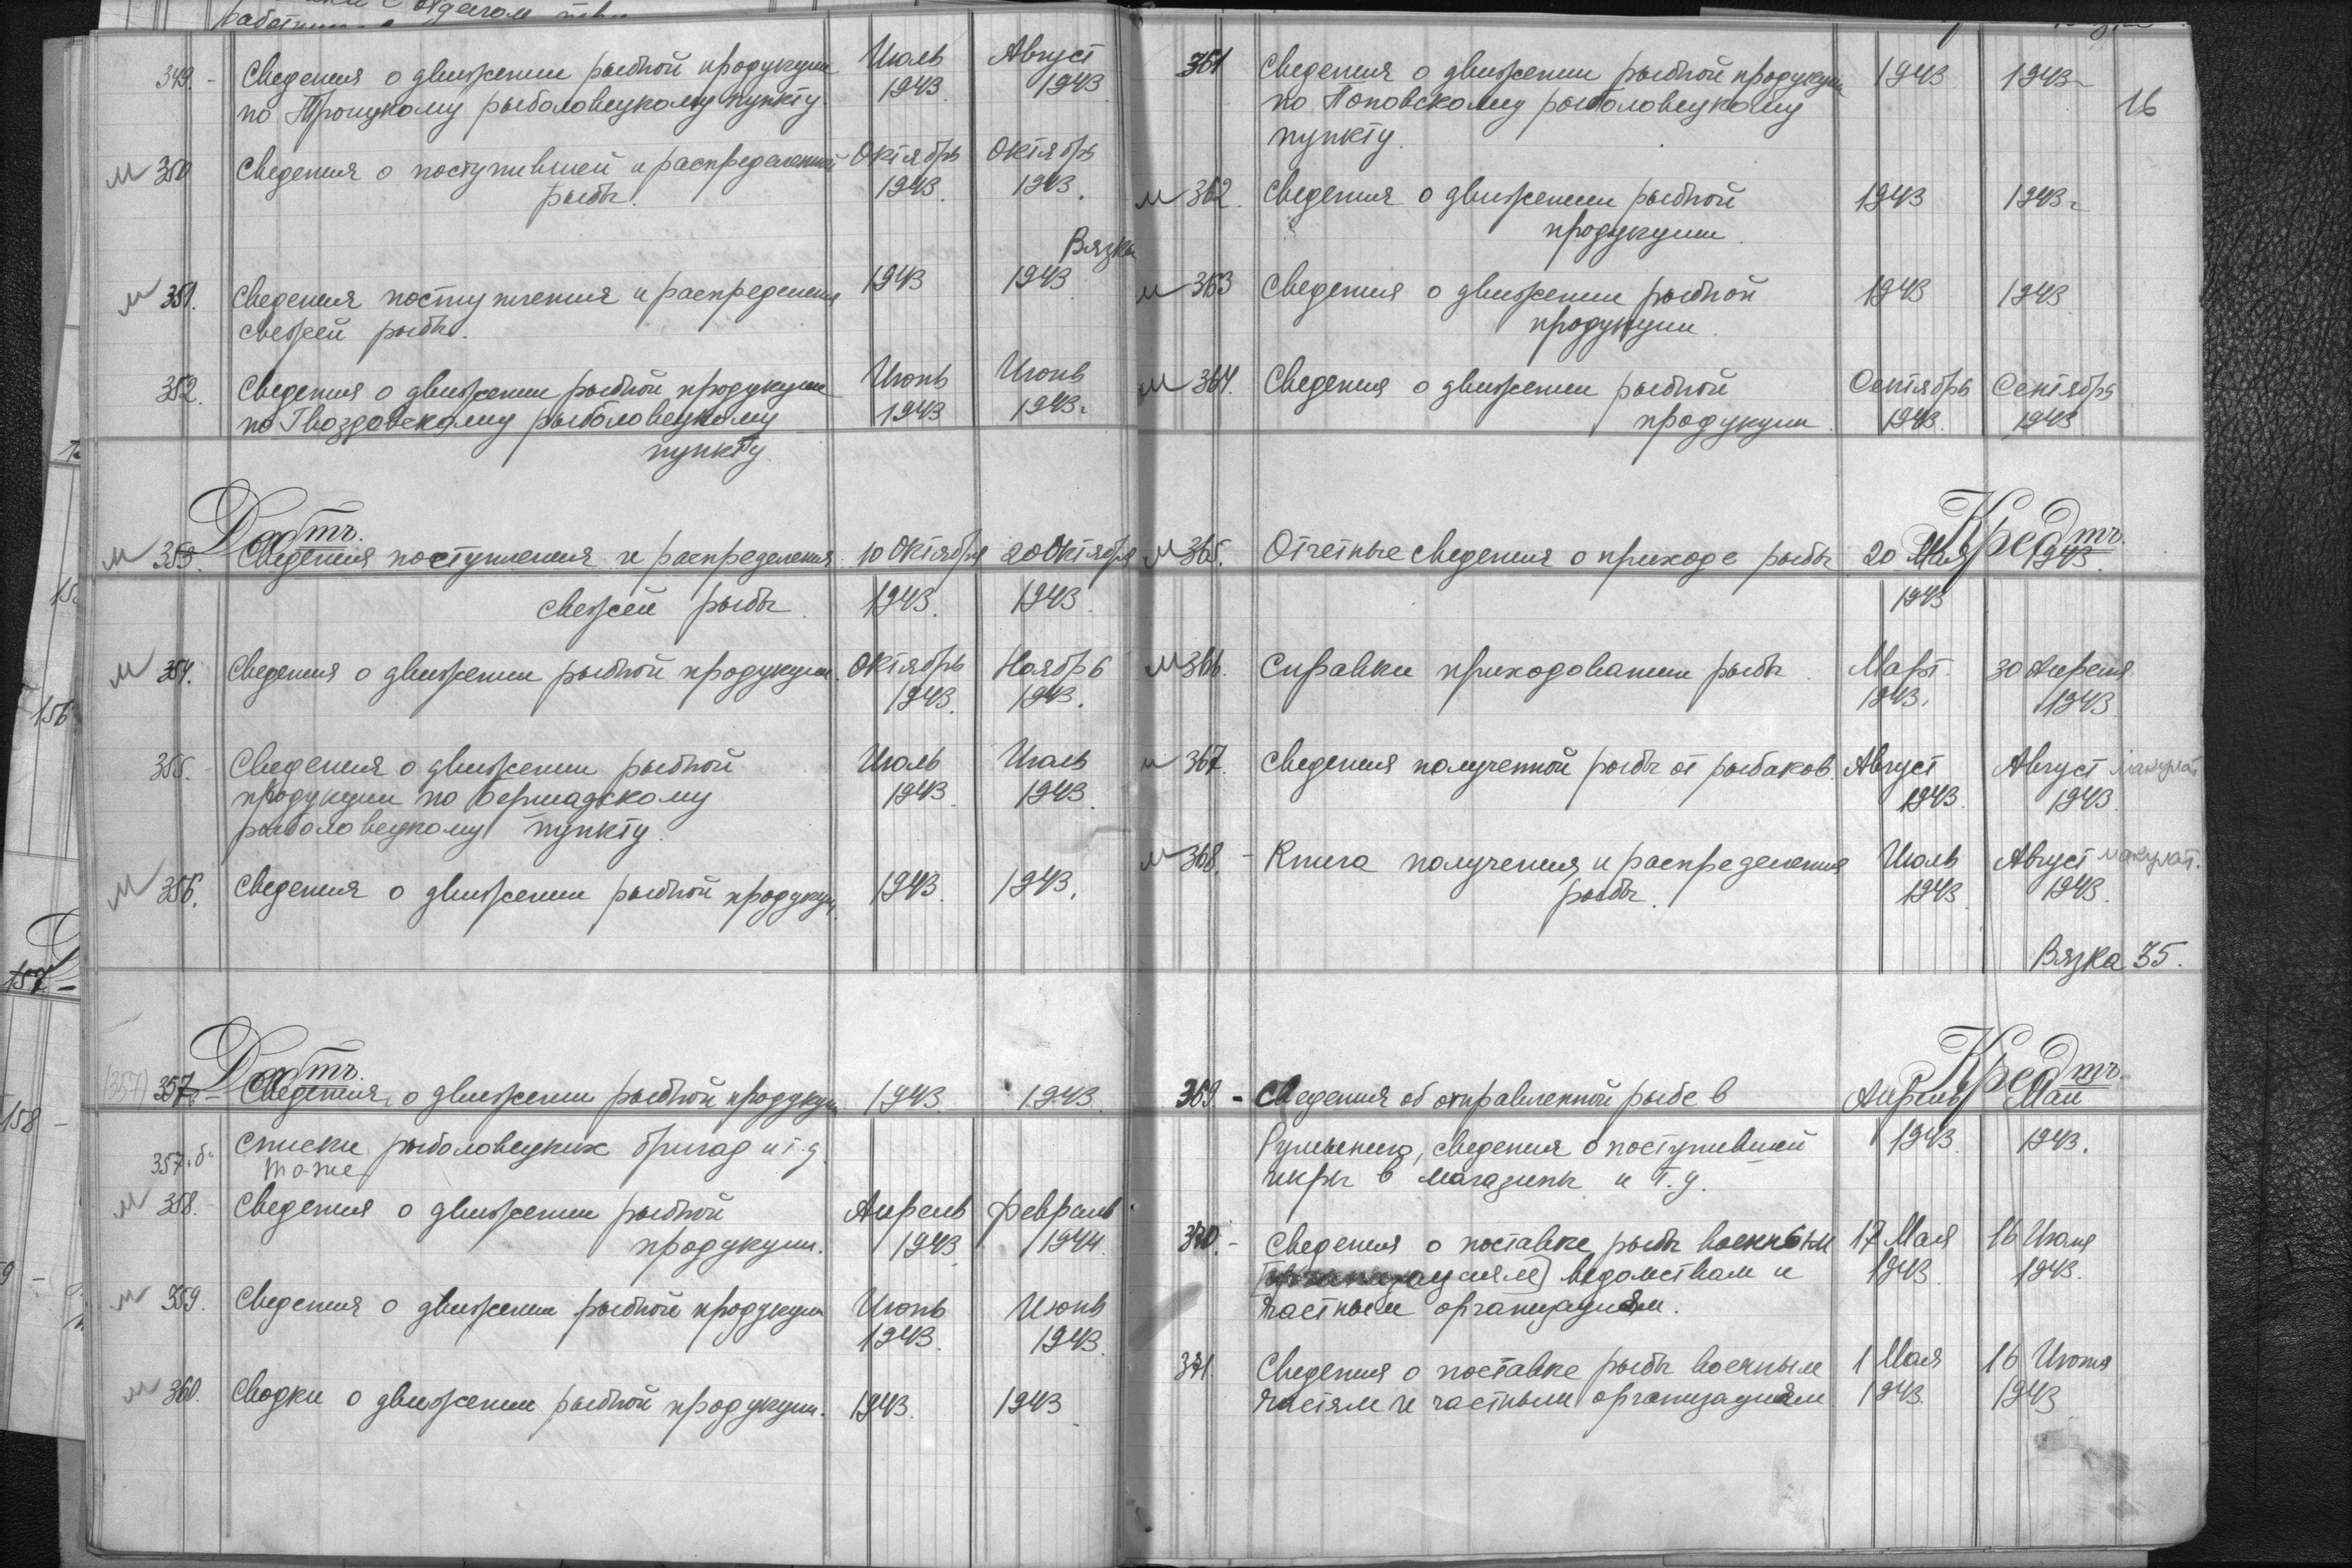 349. - Сведения о движении рыбной продукции Июль Август
по Троицкому рыболовецкому пункту. 1943 1943
м 350 Сведения о поступившей и распределенной Октябрь Октябрь
рыбы. 1943. 1943.
Вязка
м 351. Сведения поступления и распределения 1943 1943
свежей рыбы.
352. Сведения о движении рыбной продукции Июнь Июнь
по Гвоздовскому рыболовецкому 1943 1943г
пункту.
Дебтъ.
м 353. Сведения поступления и распределения 10 Октября 20 Октября
свежей рыбы. 1943. 1943.
м 354. Сведения о движении рыбной продукции. Октябрь Ноябрь
1943. 1943.
355. - Сведения о движении рыбной Июль Июль
продукции по Бершадскому 1943. 1943.
рыболовецкому пункту.
м 356. Сведения о движении рыбной продукции. 1943. 1943.
Дебтъ.
(357) 357 - Сведения о движении рыбной продукции 1943 1943
357 "б" Списки рыболовецких бригад и т.д.
тоже
м 358. - Сведения о движении рыбной Апрель Февраль
продукции. 1943 1944.
м 359. Сведения о движении рыбной продукции Июнь Июнь
1943. 1943.
м 360. Сводки о движении рыбной продукции. 1943. 1943
361 Сведения о движении рыбной продукции 1943 1943г
по Поповскому рыболовецкому 16
пункту.
м 362. Сведения о движении рыбной 1943 1943г
продукции.
м 363 Сведения о движении рыбной 1943 1943
продукции.
м 364. Сведения о движении рыбной Сентябрь Сентябрь
продукции. 1943. 1943
Кредтъ.
м 365. Отчетные сведения о приходе рыбы 20 Мая 1943.
1943
м 366. Справки приходовании рыбы. Март. 30 Апреля
1943. 1943
м 367. Сведения полученной рыбы от рыбаков. Август Август макулат
1943. 1943.
м 368. - Книга получения и распределения Июль Август макулат.
рыбы. 1943. 1943.
Вязка 35.
Кредтъ.
369. - Сведения об отправленной рыбе в Апрель Май
Румынию, сведения о поступившей 1943. 1943.
икры в магазины и т.д.
370. - Сведения о поставке рыбы военным 17 Мая 16 Июня
ведомствам и 1943. 1943.
частным организациям.
371. Сведения о поставке рыбы военным 1 Мая 16 Июня
частям и частным организациям. 1943. 1943